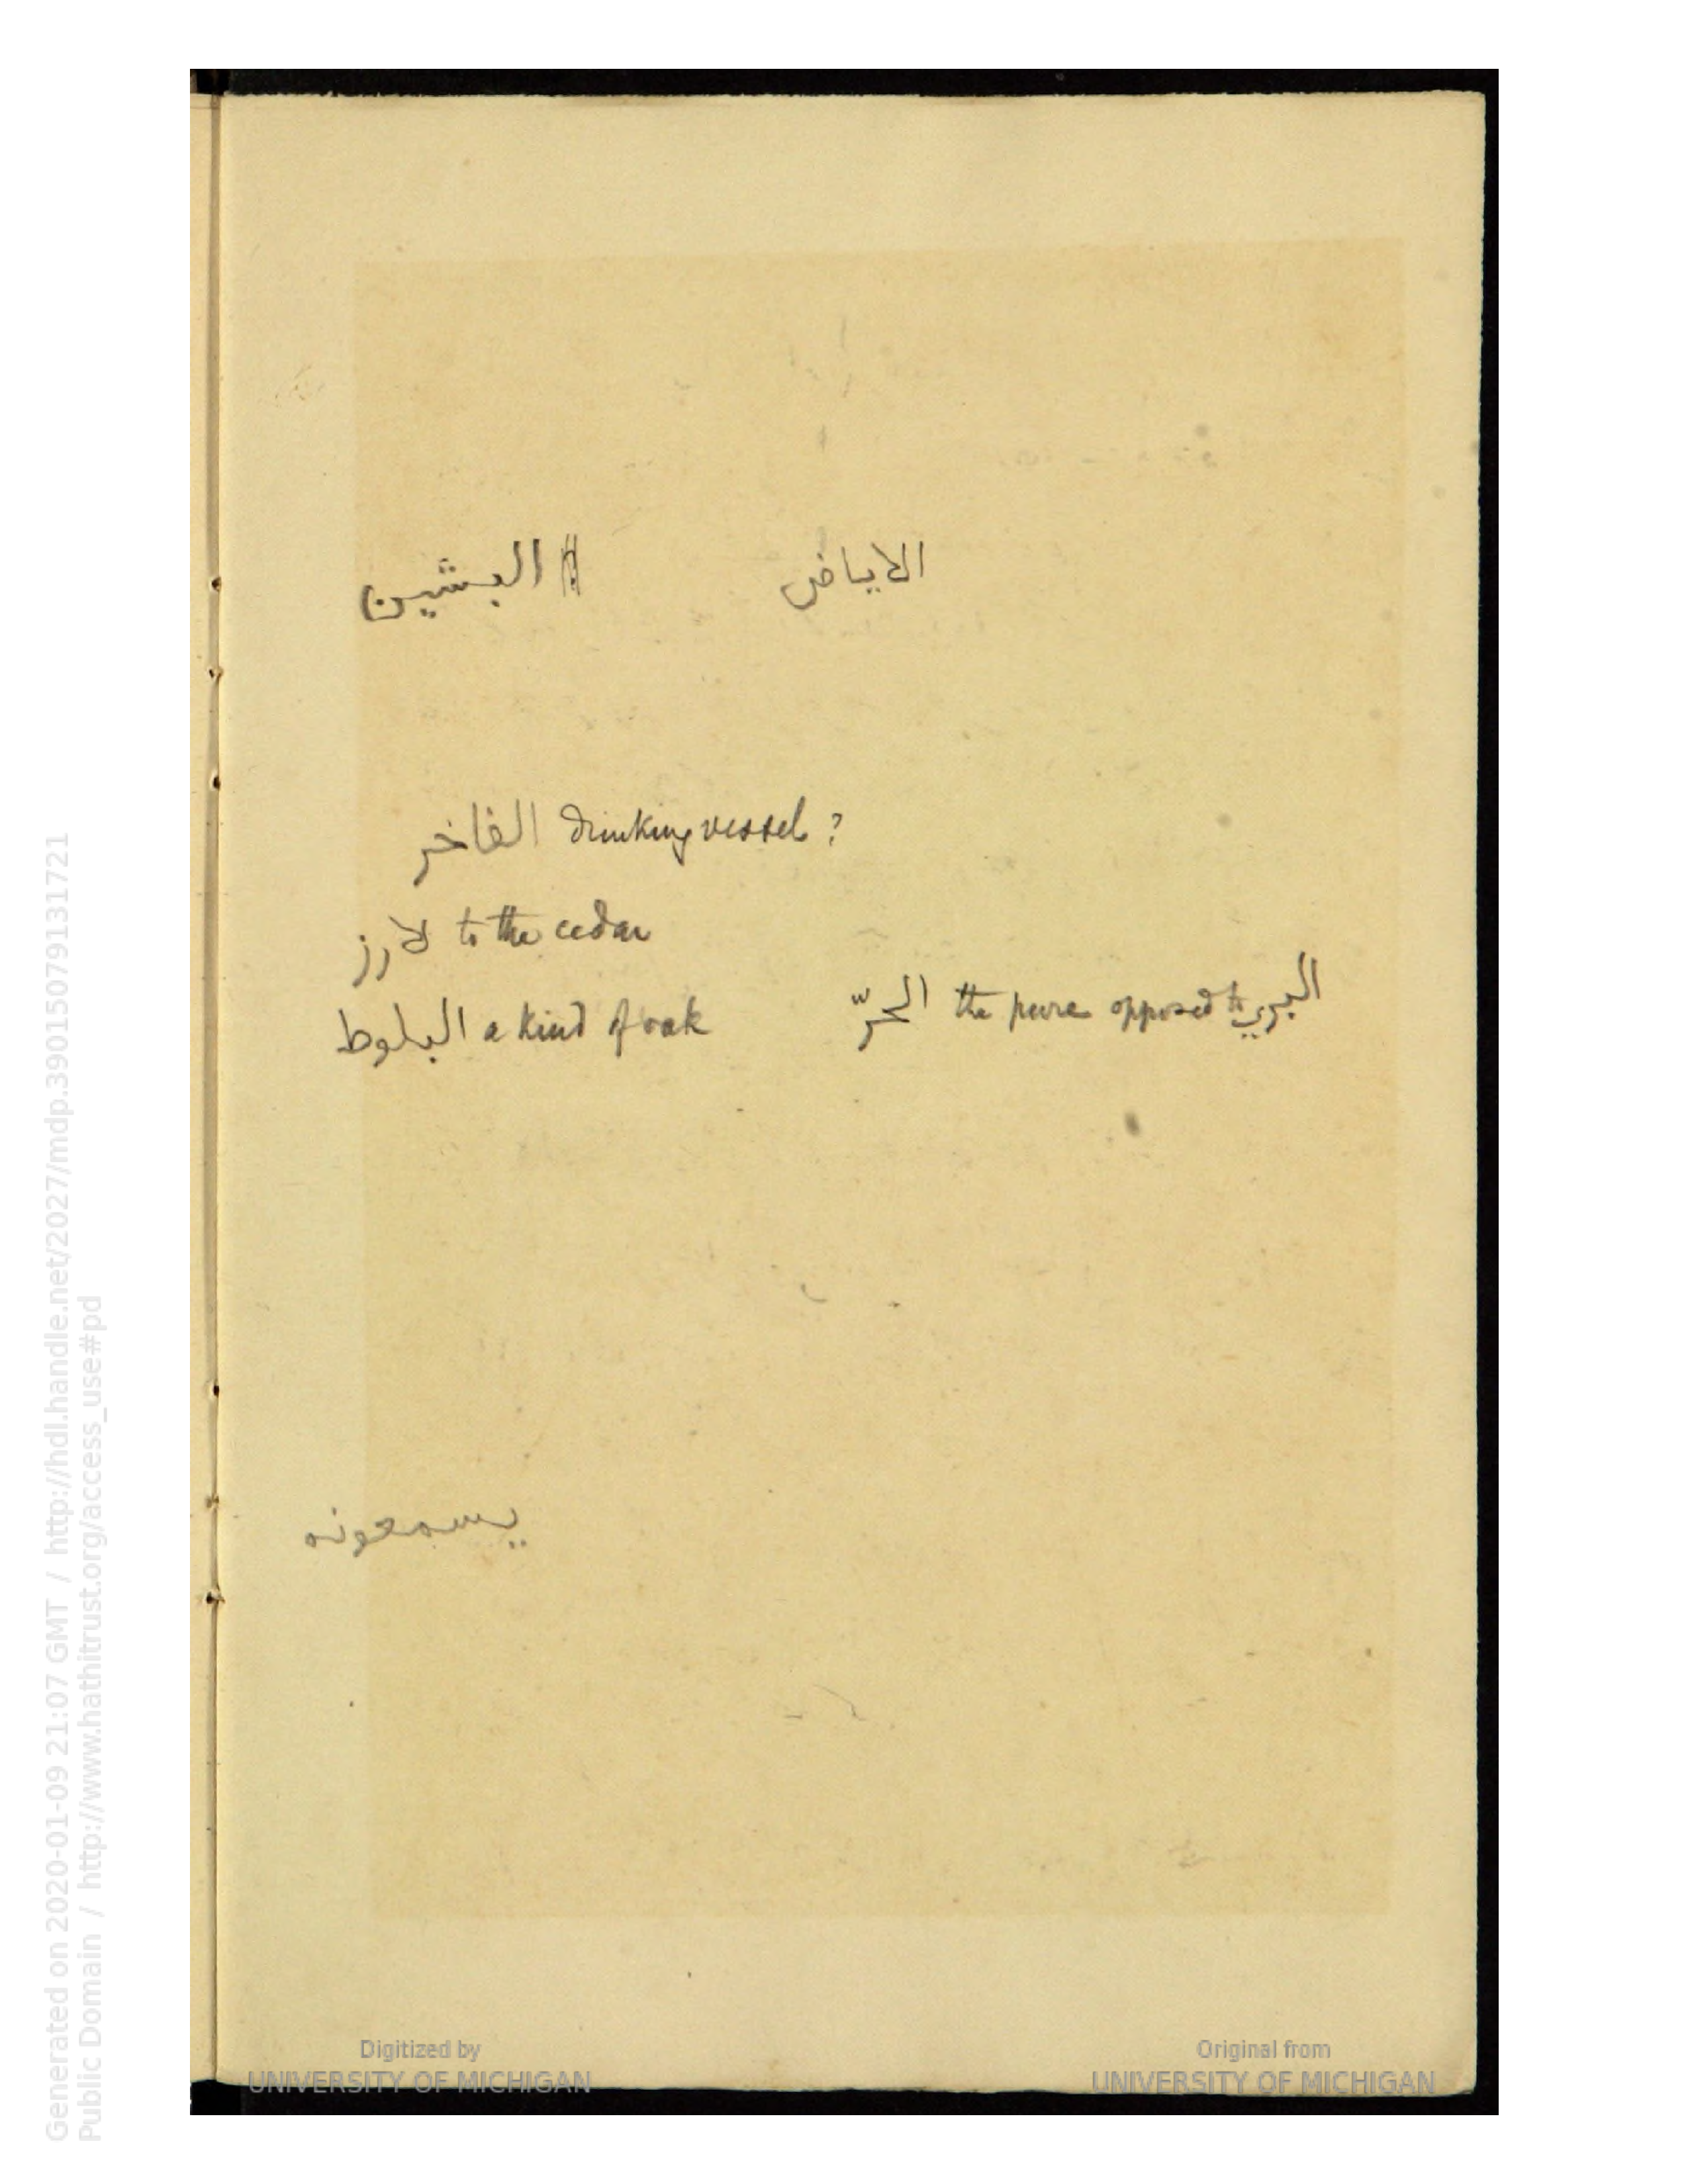 البشين
الاياض
الفاخر drinking vessel ?
لارز to the cedar
البلوط a kind of oak
الحرّ the pure opposed to البري
يسمعونه
Generated on 2020-01-09 21:07 GMT / http://hdl.handle.net/2027/mdp.39015079131721
Public Domain / http://www.hathitrust.org/access_use#pd
Digitized by
UNIVERSITY OF MICHIGAN
Original from
UNIVERSITY OF MICHIGAN